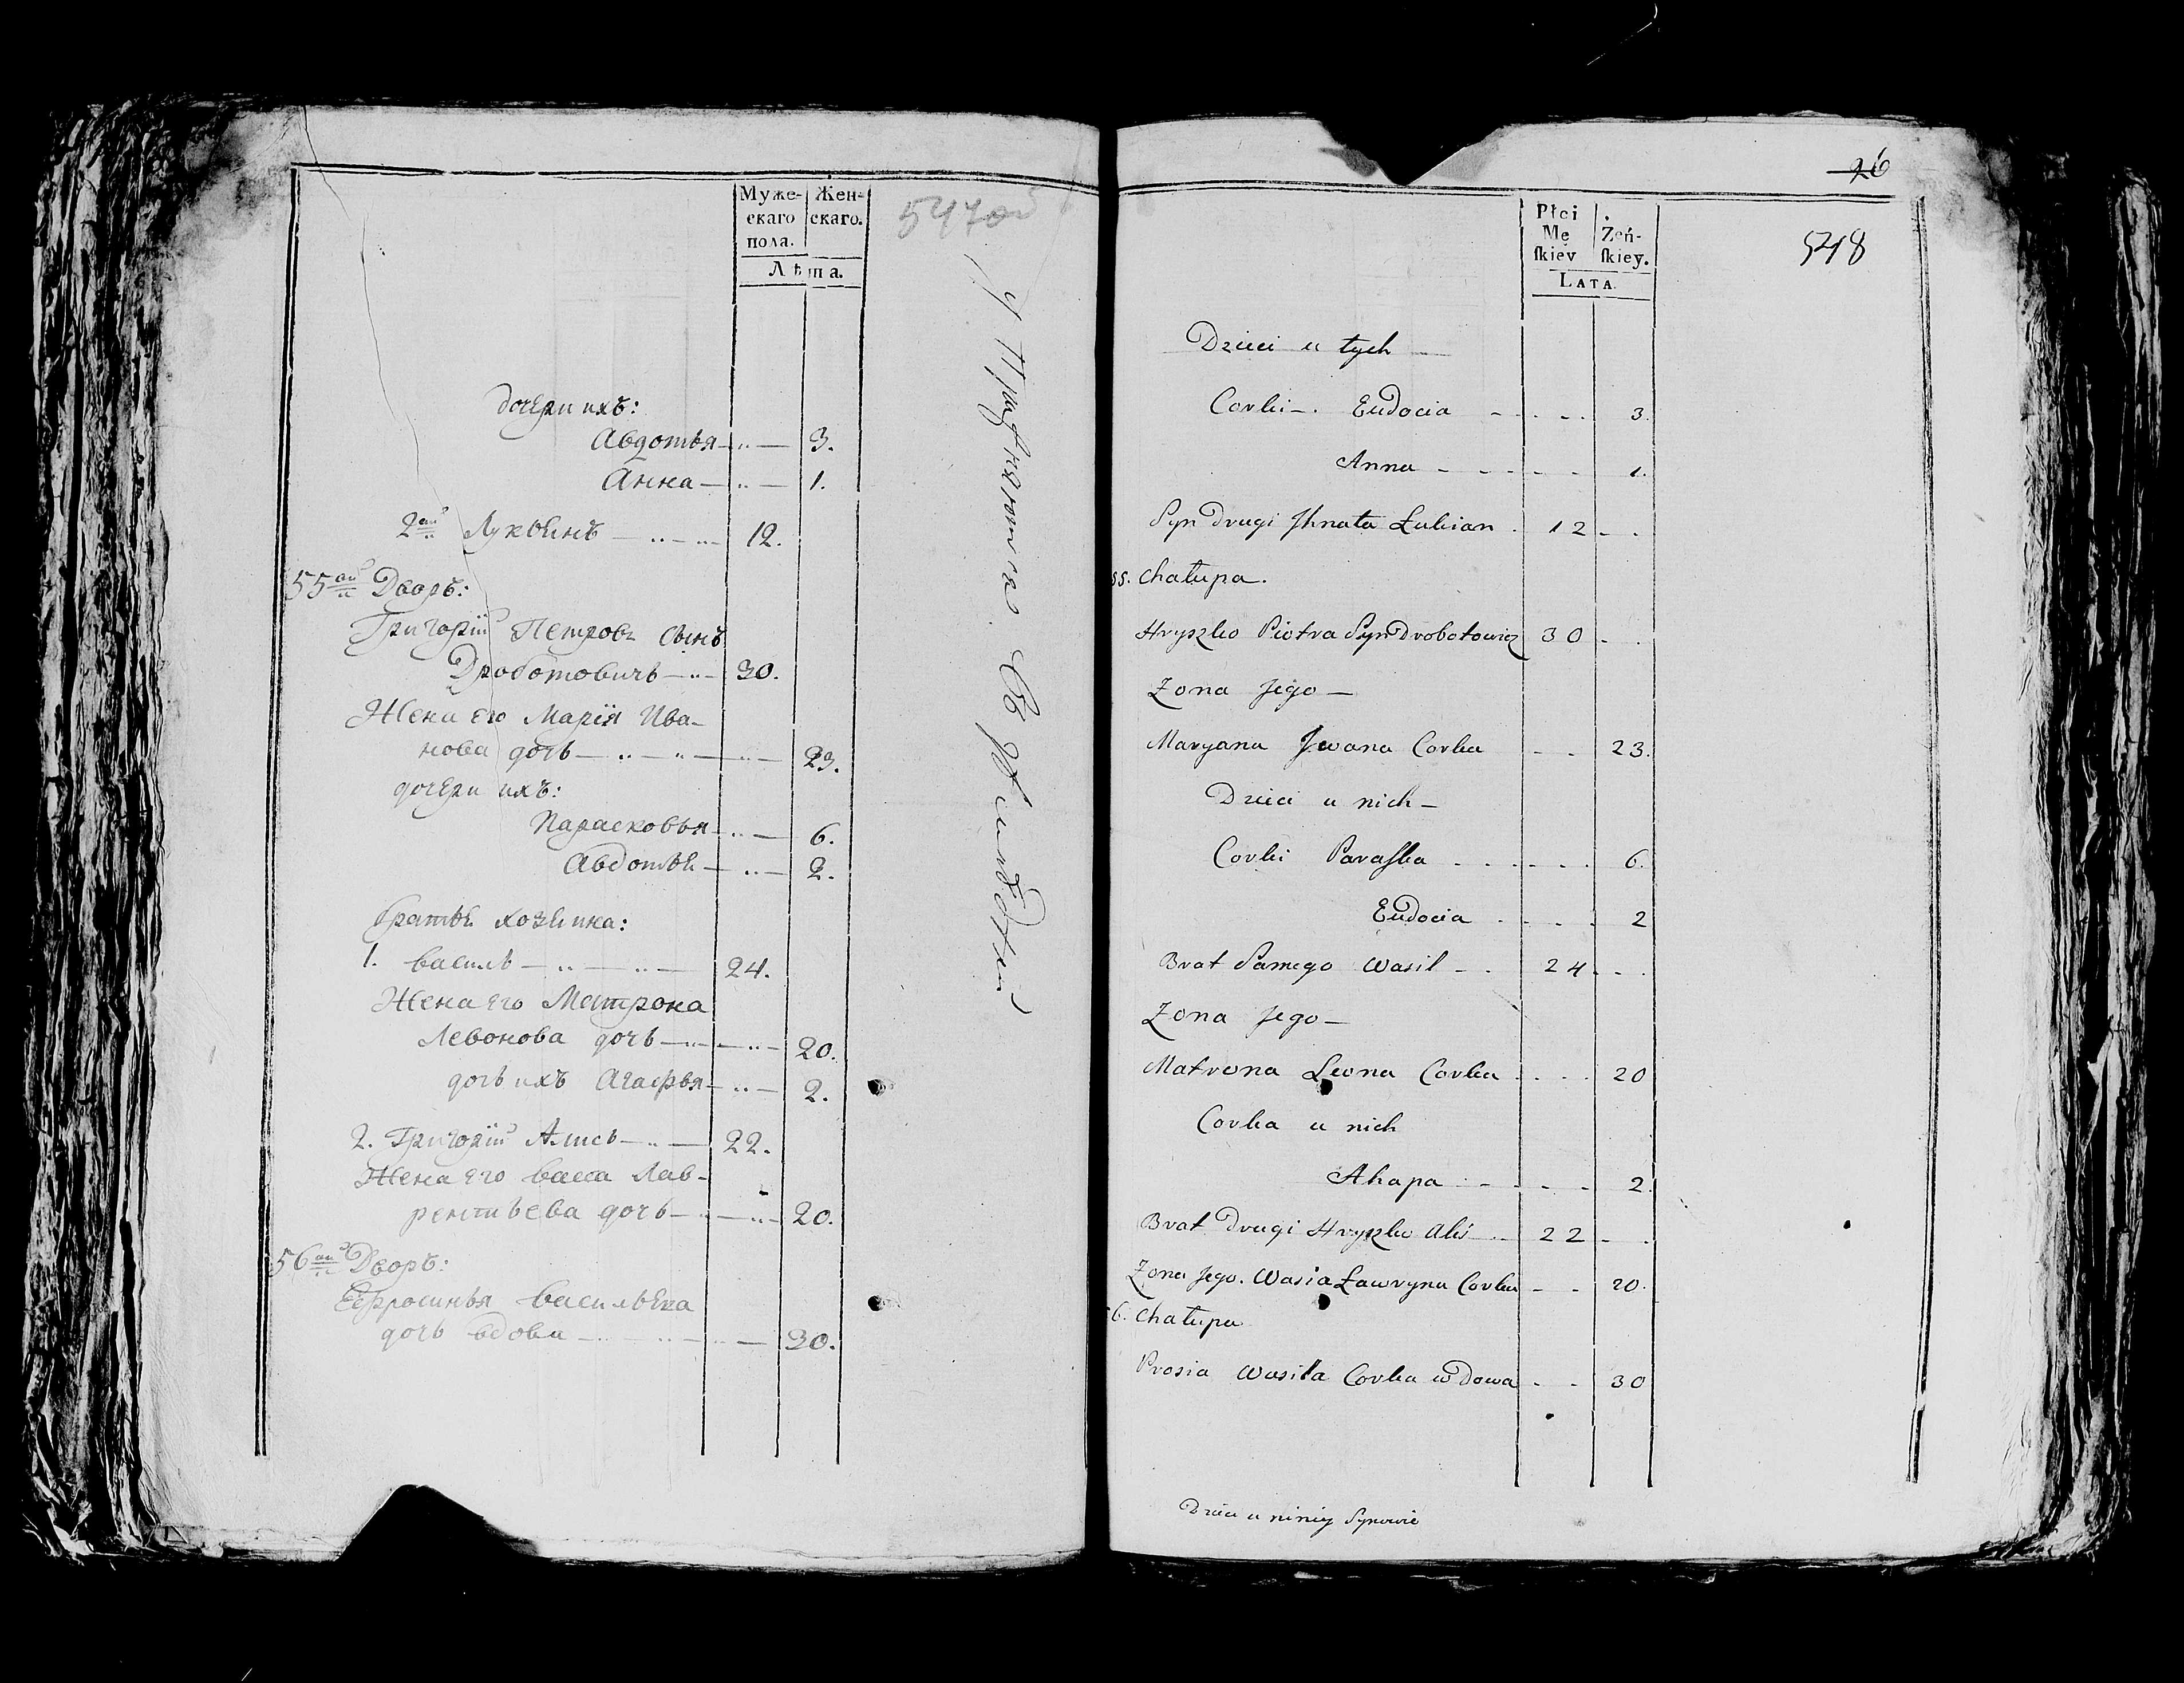 Муже-
скаго
пола.
Жен-
скаго.
Лѣта.
547об
дочери ихъ:
Авдотья 3.
Анна 1.
2ой Лукьянъ 12.
55ой Дворъ:
Григорій Петровъ сынъ
Дроботовичь 30.
Жена его Марія Ива-
нова дочь 23.
дочери ихъ:
Парасковья 6.
Авдотья 2.
братья хозяина:
1. Василь 24.
Жена его Матрона
Левонова дочь 20.
дочь ихъ Агафья 2.
2. Григорій Ались 22.
Жена его Васса Лав-
рентьева дочь 20.
56ой Дворъ:
Ефросинья Васильева
дочь вдова 30.
26
548
Płci
Mę
ſkiey
Żeń-
ſkiey.
LATA.
Dzieci u tych
Corki Eudocia 3.
Anna 1.
Syn drugi Jhnata Łukian 12
55. Chałupa.
Hryszko Piotra Syn Drobotowicz 30
Zona Jego
Maryana Jwana Corka 23.
Dzieci u nich
Corki Paraſka 6.
Eudocia 2
Brat Samego Wasil 24
Zona Jego
Matrona Leona Corka 20
Corka u nich
Ahapa 2.
Brat Drugi Hryszko Aliś 22
Zona Jego. Wasia Ławryna Corka 20.
6. Chałupa
Prosia Wasila Corka wdowa 30
Dzieci u niniey Synowie